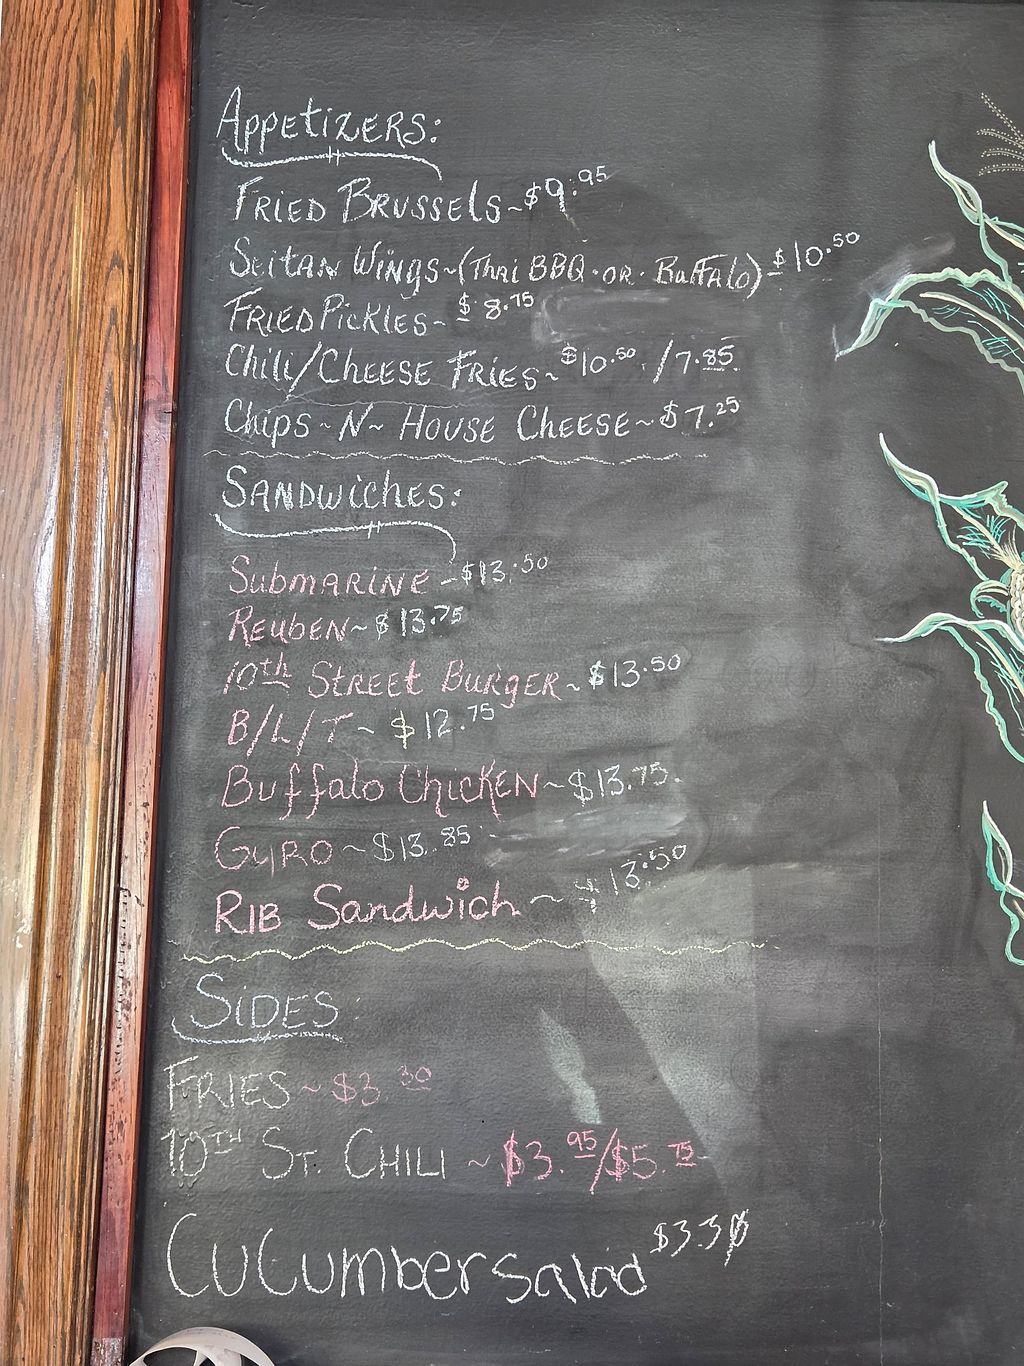 APPETIZERS:
FRIED BRUSSELS~$9.95
SEITAN WINGS~(THAI BBQ·OR·BUFFALO) $10.50
FRIED PICKLES~ $8.75
CHILI/CHEESE FRIES~$10.50/7.85
CHIPS~N~HOUSE CHEESE~$7.25
SANDWICHES:
SUBMARINE~$13.50
REUBEN~$13.75
10th STREET BURGER~$13.50
B/L/T~$12.75
Buffalo CHICKEN~$13.75
GYRO~$13.85
RIB Sandwich~$13.50
SIDES:
FRIES~$3.30
10TH ST. CHILI~$3.95/$5.75
CUCumber salad $3.30